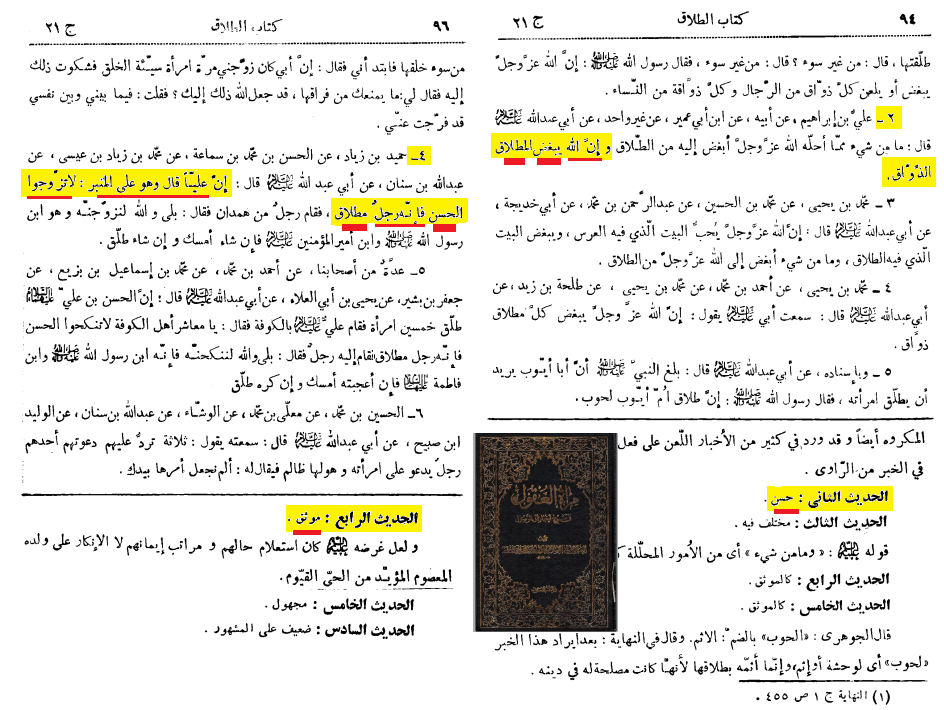 ٩٤ كتاب الطلاق ج ٢١
طلّقتها ، قال : من غير سوء ؟ قال : من غير سوء ، فقال رسول الله ﷺ : إنَّ الله عزّ وجلّ
يبغض أو يلعن كلّ ذوّاق من الرّجال وكلّ ذوّاقة من النّساء .
٢ ـ عليُّ بن إبراهيم ، عن أبيه ، عن ابن أبي عمير ، عن غير واحد ، عن أبي عبدالله عليه السلام
قال : ما من شيء ممّا أحلّه الله عزّ وجلّ أبغض إليه من الطّلاق و إنَّ الله يبغض المطلاق
الذوَّاق .
٣ ـ محمّد بن يحيى ، عن محمّد بن الحسين ، عن عبدالرّحمن بن محمّد ، عن أبي خديجة ،
عن أبي عبدالله عليه السلام قال : إنَّ الله عزّ وجلّ يحبُّ البيت الّذي فيه العرس ، ويبغض البيت
الّذي فيه الطلاق ، وما من شيء أبغض إلى الله عزّ وجلّ من الطلاق .
٤ ـ محمّد بن يحيى ، عن أحمد بن محمّد ، عن محمّد بن يحيى ، عن طلحة بن زيد ، عن
أبي عبدالله عليه السلام قال : سمعت أبي عليه السلام يقول : إنّ الله عزّ وجلّ يبغض كلّ مطلاق
ذوّاق .
٥ ـ وبإسناده ، عن أبي عبدالله عليه السلام قال : بلغ النبيّ ﷺ أنّ أبا أيّوب يريد
أن يطلّق امرأته ، فقال رسول الله ﷺ : إنَّ طلاق اُمّ أيّوب لحوب .
المكروه أيضاً و قد ورد في كثير من الأخبار اللّعن على فعل
في الخبر من الرّاوى .
الحديث الثانى : حسن .
الحديث الثالث : مختلف فيه .
قوله عليه السلام : « ومامن شيء » أى من الاُمور المحلّلة
الحديث الرابع : كالموثق .
الحديث الخامس : كالموثق .
قال الجوهرى : «الحوب» بالضمّ : الاثم . وقال فى النهاية : بعد ايراد هذا الخبر
«لحوب» أى لوحشة أو إثم، وإنّما أثّمه بطلاقها لأنّها كانت مصلحة له في دينه .
(١) النهاية ج ١ ص ٤٥٥ .
مرآة العقول
٩٦ كتاب الطلاق ج ٢١
من سوء خلقها فابتد أني فقال : إنَّ أبي كان زوَّجني مرّة امرأة سيّئة الخلق فشكوت ذلك
إليه فقال لي : ما يمنعك من فراقها ، قد جعل الله ذلك إليك ؟ فقلت : فيما بيني وبين نفسي
قد فرّجت عنّي .
٤ـ حميد بن زياد ، عن الحسن بن محمّد بن سماعة ، عن محمّد بن زياد بن عيسى ، عن
عبدالله بن سنان ، عن أبي عبد الله عليه السلام قال : إنَّ عليّاً قال وهو على المنبر : لاتزوّجوا
الحسن فإنّه رجلٌ مطلاق ، فقام رجلٌ من همدان فقال : بلى و الله لنزوّجنّه و هو ابن
رسول الله ﷺ وابن أمير المؤمنين عليه السلام فإن شاء أمسك و إن شاء طلّق .
٥ـ عدَّةٌ من أصحابنا ، عن أحمد بن محمّد ، عن محمّد بن إسماعيل بن بزيع ، عن
جعفر بن بشير، عن يحيى بن أبي العلاء ، عن أبي عبدالله عليه السلام قال : إنَّ الحسن بن عليّ عليهما السلام
طلّق خمسين امرأة فقام عليٌّ عليه السلام بالكوفة فقال : يا معاشر أهل الكوفة لاتنكحوا الحسن
فإنّه رجل مطلاق فقام إليه رجلٌ فقال : بلى والله لننكحنّه فإنّه ابن رسول الله ﷺ وابن
فاطمة عليها السلام فإن أعجبته أمسك و إن كره طلّق
٦ـ الحسين بن محمّد ، عن معلّى بن محمّد ، عن الوشّاء ، عن عبدالله بن سنان ، عن الوليد
ابن صبيح ، عن أبي عبدالله عليه السلام قال : سمعته يقول : ثلاثة تردُّ عليهم دعوتهم أحدهم
رجلٌ يدعو على امرأته و هو لها ظالم فيقال له : ألم نجعل أمرها بيدك .
الحديث الرابع : موثق .
و لعل غرضه عليه السلام كان استعلام حالهم و مراتب إيمانهم لا الإنكار على ولده
المعصوم المؤيّد من الحيّ القيّوم .
الحديث الخامس : مجهول .
الحديث السادس : ضعيف على المشهور .